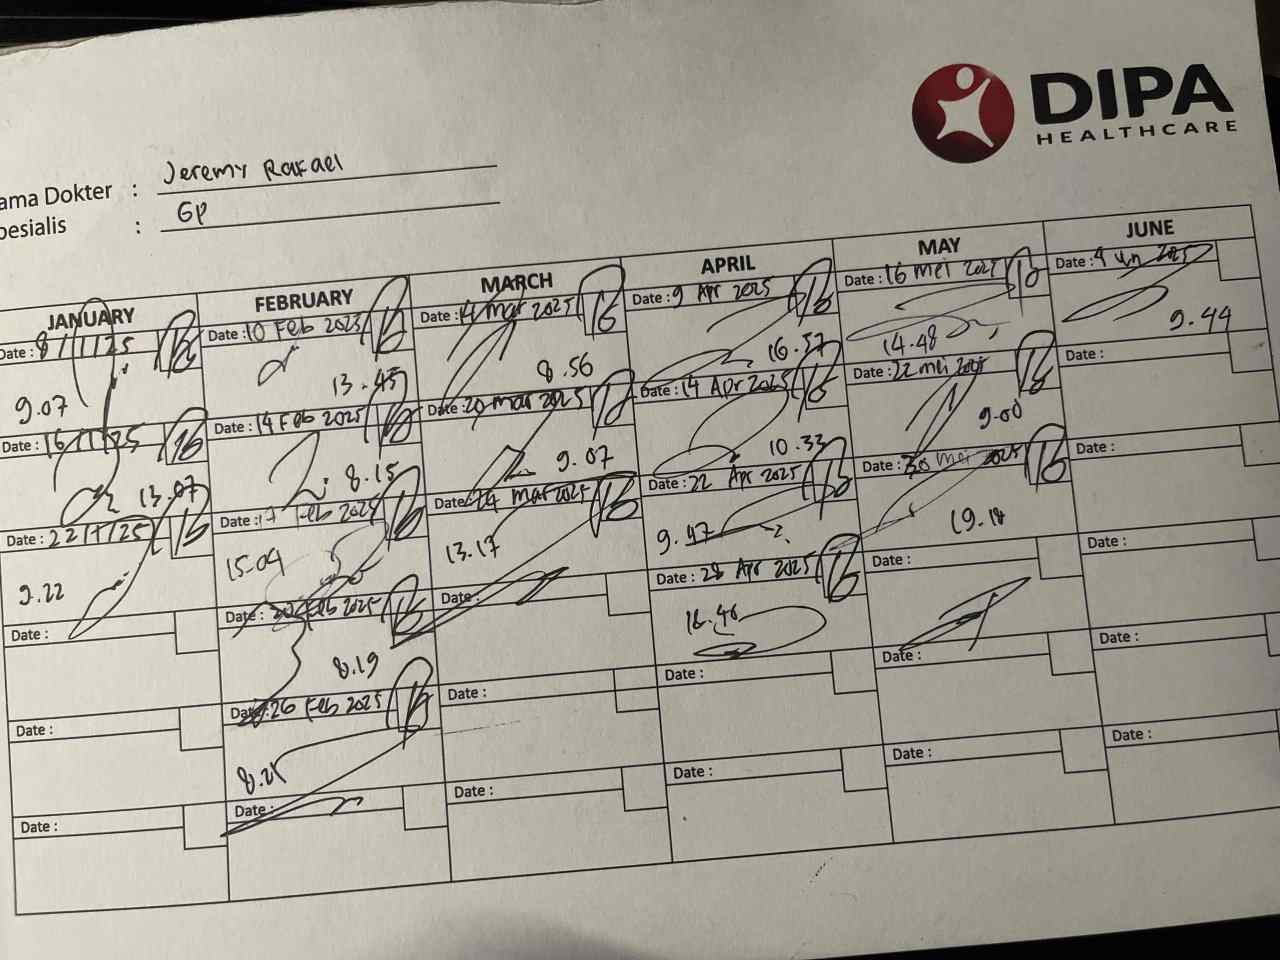 DIPA
HEALTHCARE
ama Dokter : Jeremy Rafael
pesialis : GP
JANUARY
Date : 8/1/25
9.07
Date : 16/1/25
13.07
Date : 22/1/25
9.22
Date :
Date :
Date :
FEBRUARY
Date : 10 Feb 2025
13.45
Date : 14 Feb 2025
8.15
Date : 17 Feb 2025
15.04
Date : Feb 2025
8.19
Date : 26 Feb 2025
8.25
Date :
MARCH
Date : 14 mar 2025
8.56
Date : 20 mar 2025
9.07
Date : 24 mar 2025
13.17
Date :
Date :
Date :
APRIL
Date : 9 Apr 2025
16.37
Date : 14 Apr 2025
10.33
Date : 22 Apr 2025
9.47
Date : 28 Apr 2025
16.46
Date :
Date :
MAY
Date : 16 mei 2025
14.48
Date : 22 mei 2025
9.00
Date : 30 mei 2025
19.18
Date :
Date :
Date :
JUNE
Date : 4 Jun 2025
9.44
Date :
Date :
Date :
Date :
Date :